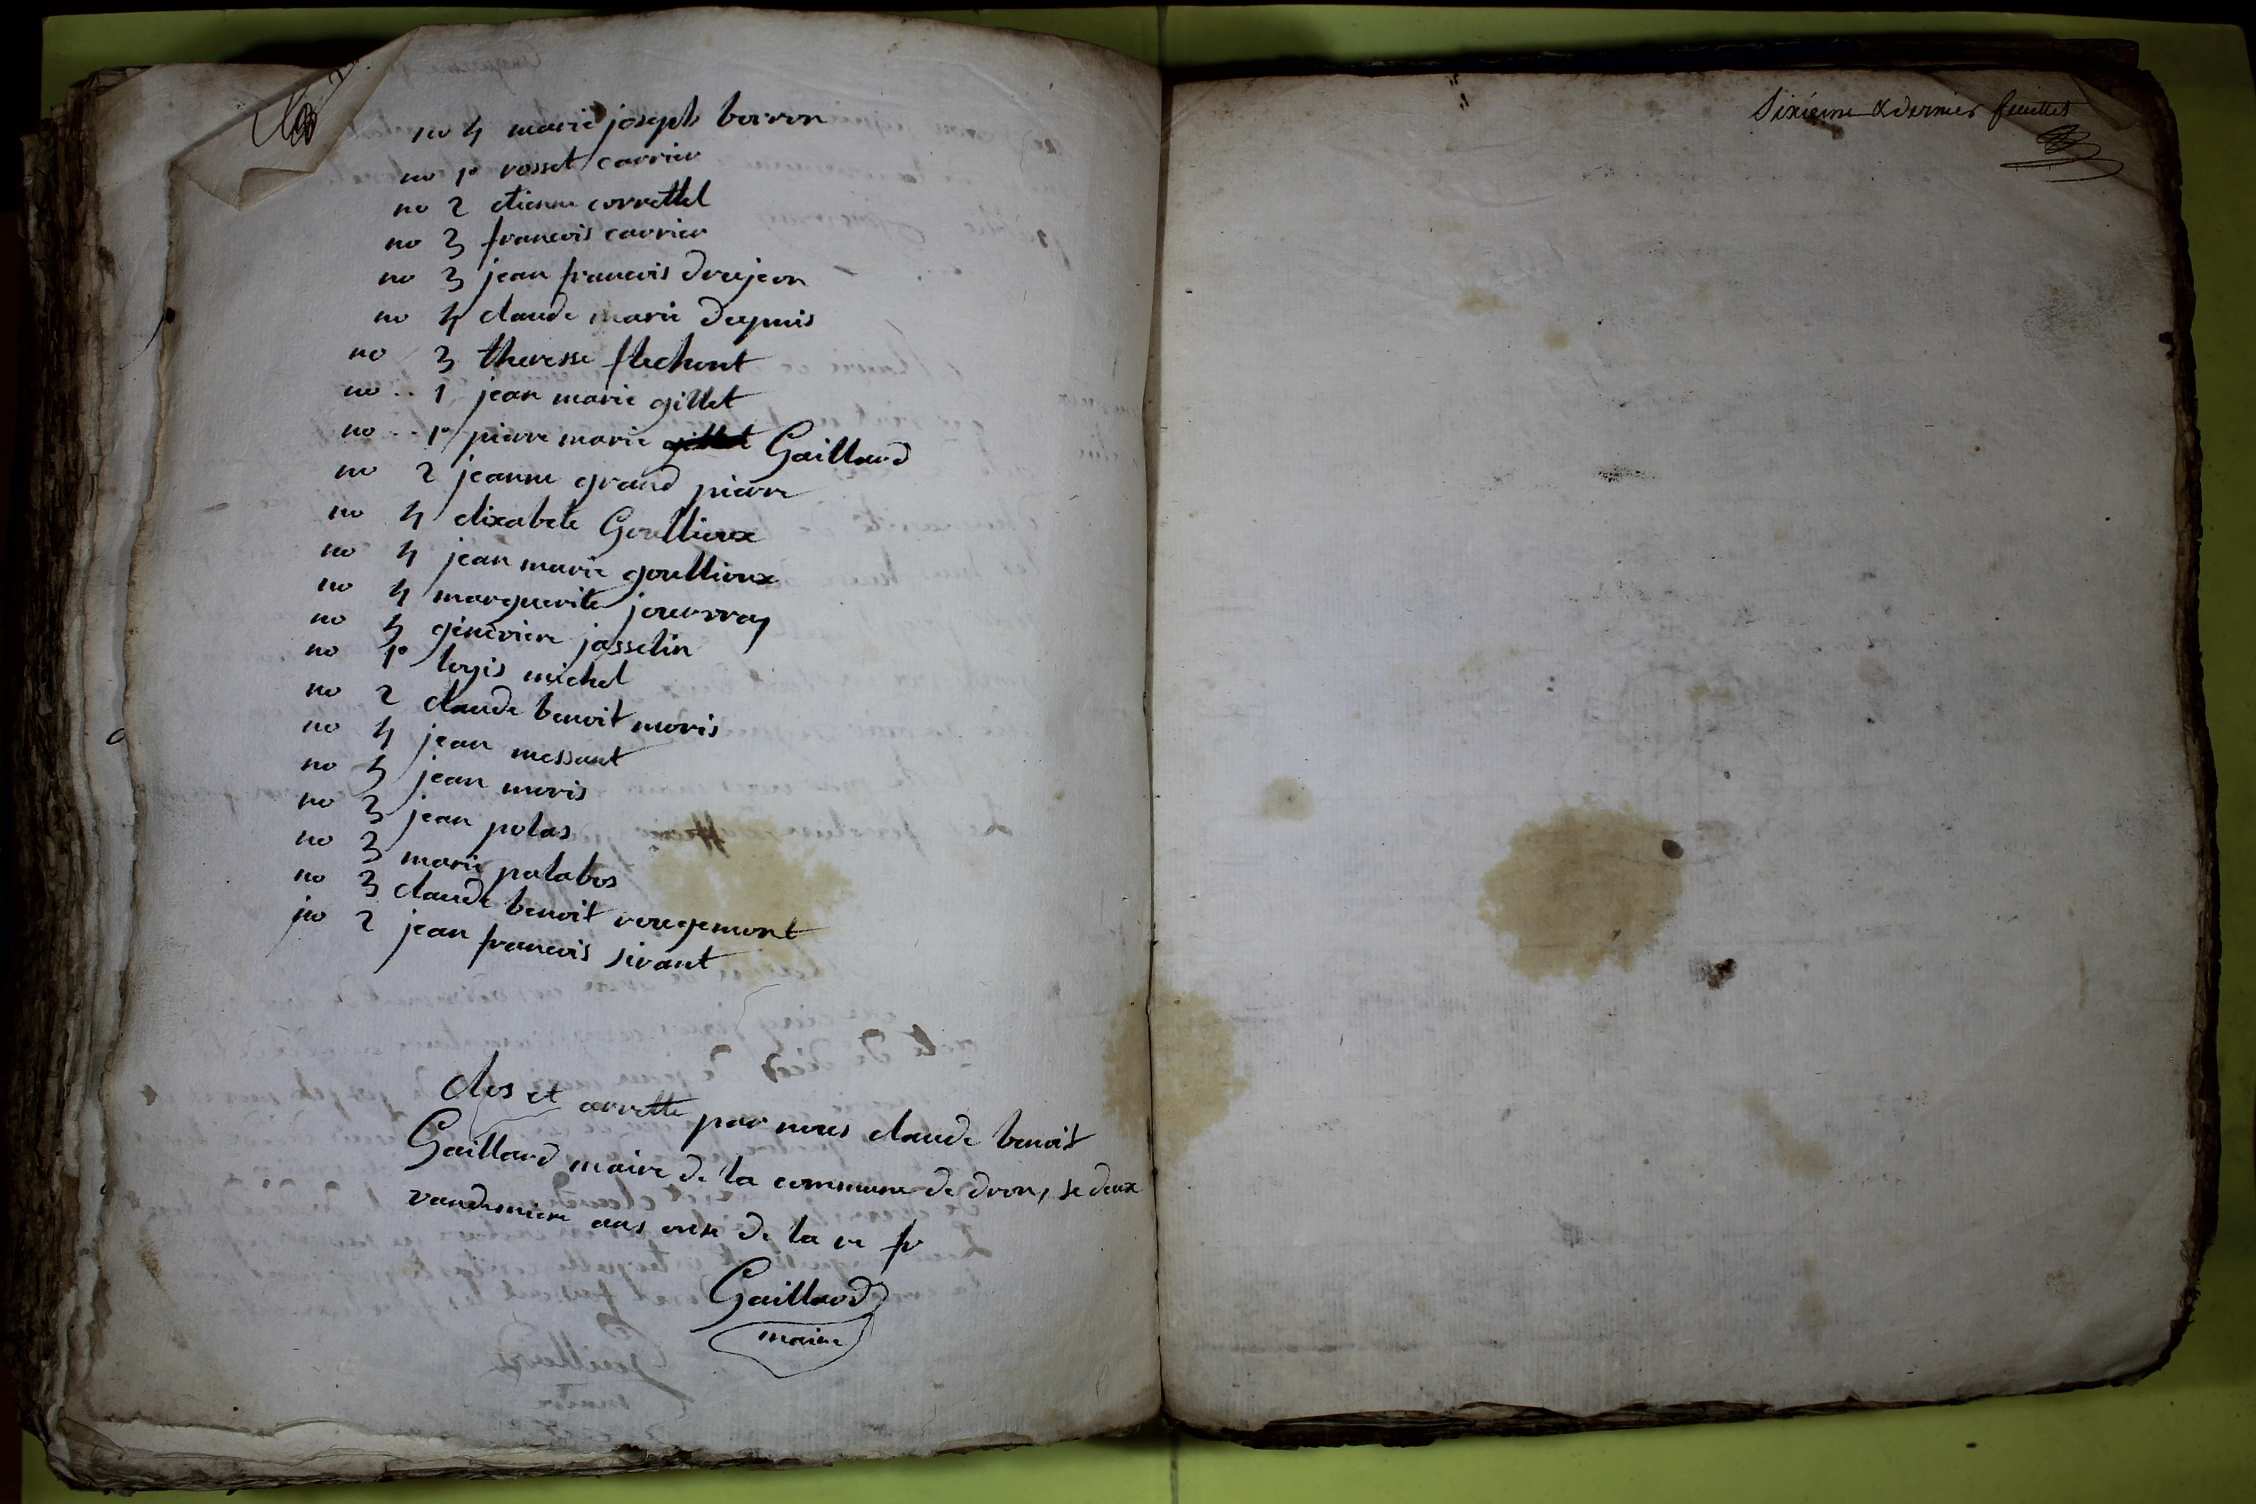 no 4 marie joseph borron
no 1º rosset carrier
no 2 etienne correttel
no 3 francois carrier
no 3 jean francois droujeon
no 4 claude marie dupuis
no 3 theresse flechont
no .. 1 jean marie gillet
no .. 1º pierre marie gillet Gaillard
no 2 jeanne grand pierre
no 4 elixabete Goullioux
no 4 jean marie goullioux
no 4 marguerite jouvray
no 4 génévieve josselin
no 1º loyis michel
no 2 claude benoit moris
no 4 jean messant
no 4 jean moris
no 3 jean polas
no 3 marie palabos
no 3 claude benoit rougemont
no 2 jean francois sivant
clos et arrette par nous claude benoit
Gaillard maire de la commune de dron, le deux
vandemiere ans onse de la re fr
Gaillard
maire
Sixiéme & dernier feuillet